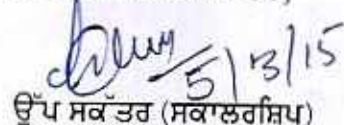 5/3/15
ਉੱਪ ਸਕੱਤਰ (ਸਕਾਲਰਸ਼ਿਪ)